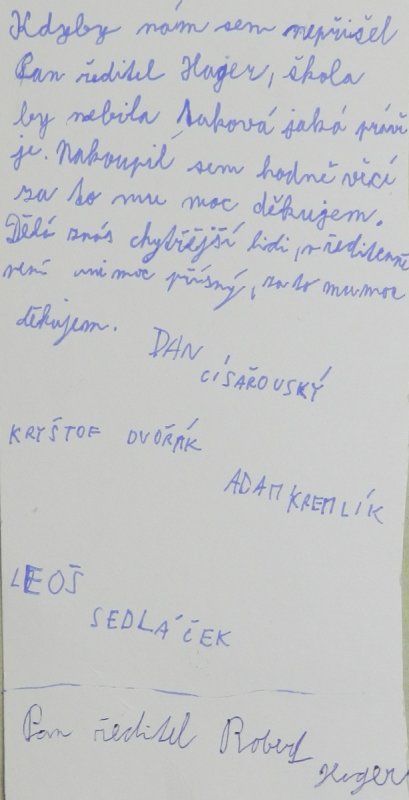 Kdyby nám sem nepřišel
Pan ředitel Hager, škola
by nebila taková jaká právě
je. Nakoupil sem hodně věcí
za to mu moc děkujem.
Dělá znás chytřejší lidi, v ředitelně
není ani moc přísný, za to mu moc
děkujem.
DAN
CÍSAŘOUSKÝ
KRYŠTOF DVOŘÁK
ADAM KREMLÍK
LEOŠ
SEDLÁČEK
Pan ředitel Robert
Hager